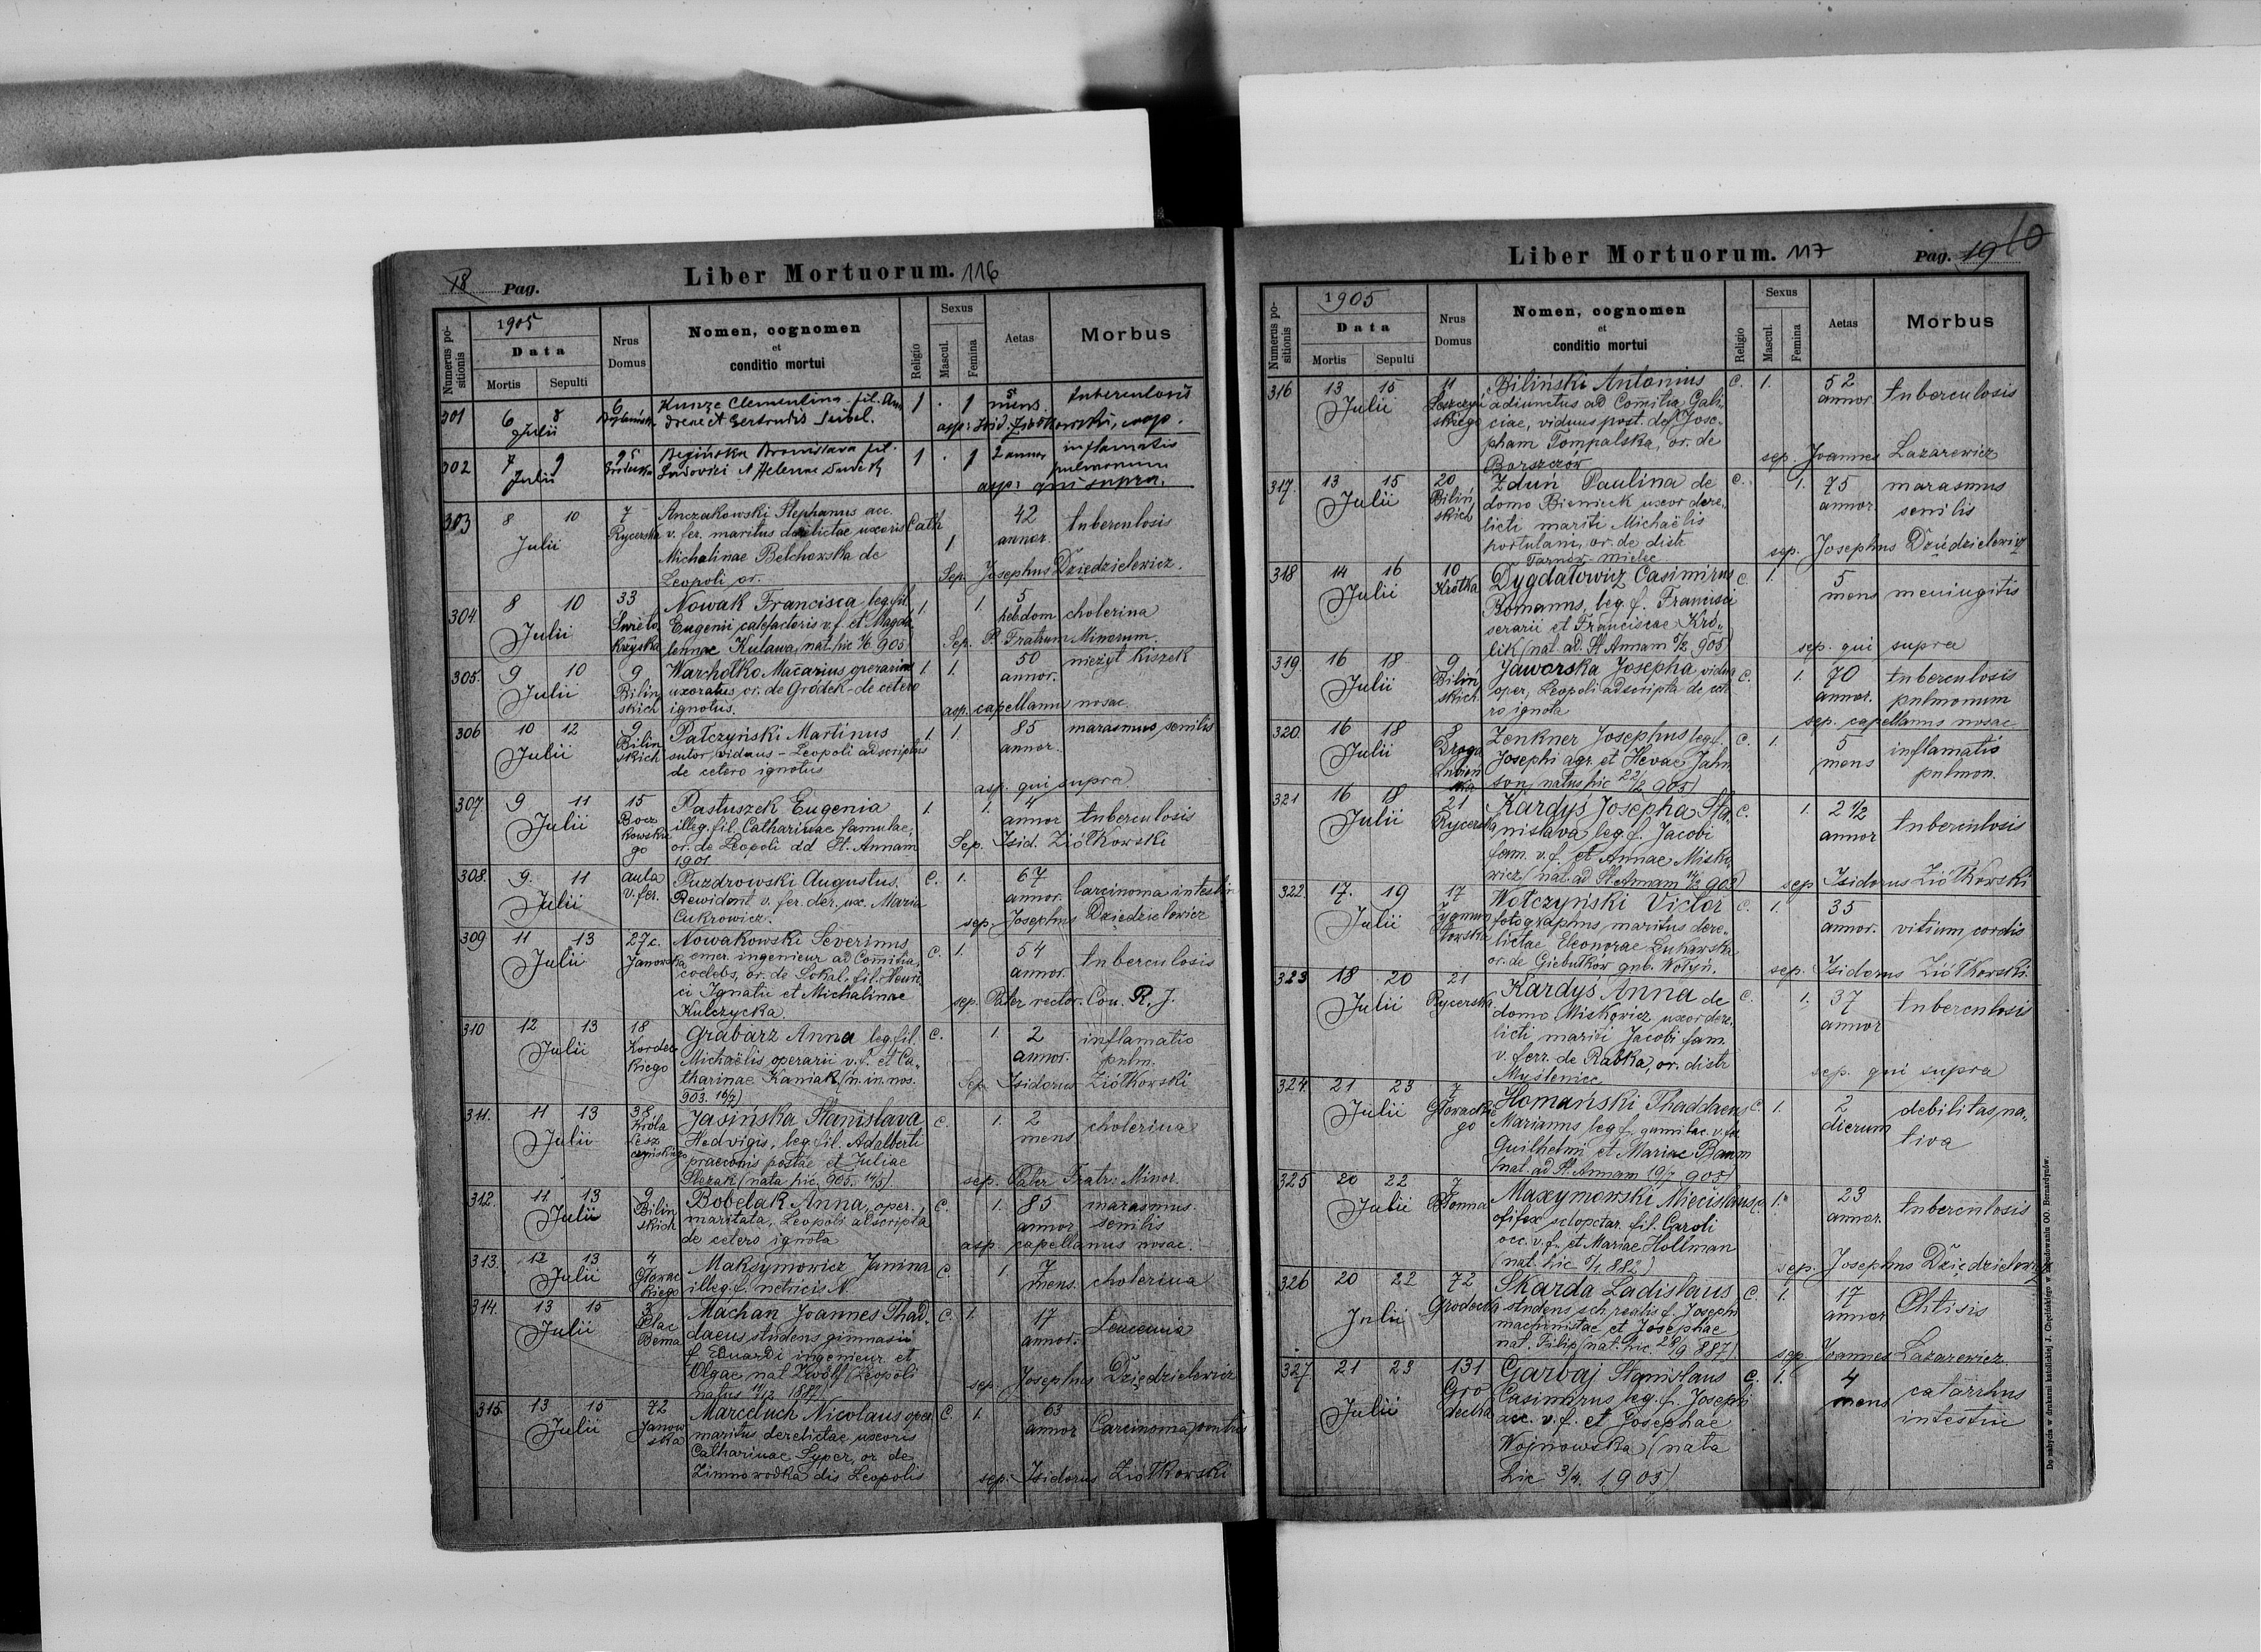 18 Pag. Liber Mortuorum. 116
Numerus positionis
1905
Data
Mortis Sepulti
Nrus Domus
Nomen, cognomen
et
conditio mortui
Religio
Sexus
Mascul. Femina
Aetas
Morbus
301 6 8 6 Kunze Clementina fil. An 1 . 1 5 tuberculosis
Julii dreae et Gertrudis Seibel. mens.
asp: Isid. Ziółkowski, coop.
302 7 9 95 Bronislava fil. 1 . 1 2 annor inflamatio
Julii Grodecka Ludovici et Helenae pulmonum
asp: qui supra.
303 8 10 7 Anczakowski Stephanus acc. Cath 1. 42 tuberculosis
Julii Rycerska v. fer. maritus derelictae uxoris annor.
Michalinae Belchowska de
Leopoli or. Sep. Josephus Dziędzielewicz.
304. 8 10 33 Nowak Francisca leg. fil. 1. 1. 5 cholerina
Julii Świeto Eugenii calefactoris v. f. et Magda hebdom
krzyska lennae Kulawa, nat. hic 1/6 905 Sep. P. Fratrum Minorum.
305. 9 10 9 Warchołko Macarius operarius 1. 1. 50 nieżyt kiszek
Julii Biliń uxoratus or. de Gródek - de cetero annor.
skich ignotus. asp. capellanus nosac.
306 10 12 9 Pałczyński Martinus 1. 1. 85 marasmus senilis
Julii Biliń sutor, viduus - Leopoli adscriptus annor.
skich de cetero ignotus
asp. qui supra
307 9 11 15 Pastuszek Eugenia 1. 1. 4 tuberculosis
Julii Bocz illeg. fil. Catharinae famulae, annor
kowskie or. de Leopoli ad St. Annam Sep. Isid. Ziółkowski
go 1901
308. 9. 11 aula Puzdrowski Augustus. C. 1. 67 Carcinoma intestin
Julii v. fer. Rewident v. fer. der. ux. Maria annor.
Cukrowicz. sep. Josephus Dziędzielewicz
309 11 13 27c. Nowakowski Severinus C. 1. 54 tuberculosis
Julii Janowska emer. ingenieur ad Comitia, annor.
coelebs, or. de Sokal, fil. Henri
ci Ignatii et Michalinae sep. Pater rector. Con. R. J.
Kulczycka.
310 12 13 18 Grabarz Anna leg. fil. C. 1. 2 inflamatio
Julii Kordec Michaëlis operarii v. f. et Ca- annor. pulm.
kiego tharinae Kaniak (n. in. nos. Sep. Isidorus Ziółkowski
903. 16/7)
311. 11 13 38 Jasińska Stanislava C. 1. 2 cholerina
Julii Króla Hedvigis, leg. fil. Adalberti mens
Lesz praeconis postae et Juliae
czyńskiego Ślezak (nata hic, 905. 14/5) sep. Pater Fratr. Minor.
312. 11 13 9 Bobelak Anna, oper., C. 1. 85 marasmus
Julii Biliń maritata, Leopoli adscripta annor senilis
skich de cetero ignota asp. capellanus nosac.
313. 12 13 4 Maksymowicz Janina C 1. 7 cholerina
Julii Głowac illeg. f. netricis N. mens.
kiego
314. 13 15 3 Machan Joannes Thad- C. 1. 17 Leucemia
Julii Plac daeus studens gimnasii annor.
Bema f. Eduardi ingenieur et
Olgae nat. Zwolf (Leopoli sep. Josephus Dziędzielewicz
natus 11/12 1887)
315. 13 15 72 Marceluch Nicolaus oper. C. 1. 63 Carcinoma
Julii Janow maritus derelictae uxoris annor
ska Catharinae Syper, or. de
Zimnowodka dis Leopolis sep: Isidorus Ziółkowski
Liber Mortuorum. 117 Pag. 19 10
Numerus positionis
1905
Data
Mortis Sepulti
Nrus Domus
Nomen, cognomen
et
conditio mortui
Religio
Sexus
Mascul. Femina
Aetas
Morbus
316 13 15 11 Biliński Antonius C. 1. 52 tuberculosis
Julii Leszczyń adiunctus ad Comitia Gali- annor
skiego ciae, viduus post. def. Jose-
pham Tompalska, or. de
Borszczów sep. Joannes Lazarewicz
317. 13 15 20 Zduń Paulina de C. 1. 75 marasmus
Julii Biliń domo Bieniek uxor dere- annor. senilis
skich licti mariti Michaëlis
portulani, or. de distr sep. Josephus Dziędzielewicz
Tarnów Mielec
318 14 16 10 Dygdałowicz Casimirus C. 1. 5 meningitis
Julii Krótka Romanus, leg. f. Francisci mens
serarii et Franciscae Kró-
lik (nat. ad. St Annam 5/2 905) sep. qui supra
319. 16 18 9 Jaworska Josepha vidua C. 1. 70 tuberculosis
Julii Biliń oper, Leopoli adscripta de cete annor. pulmonum
skich. ro ignota sep. capellanus nosac
320. 16 18 8 Zenkner Josephus leg. f. C. 1. 5 inflamatio
Julii Droga Josephi agr. et Hevae Jahn mens pulmon.
Lubień son, natus hic 22/2 905)
ska
321 16 18 21 Kardyś Josepha Sta- C. 1. 2 1/2 tuberculosis
Julii Rycerska nislava leg. f. Jacobi annor
fam. v. f. et Annae Misko-
wicz (nat. ad St Annam 11/2 903) sep Isidorus Ziółkowski
322. 17. 19 17 Wołczyński Victor C. 1. 35 vitium cordis
Julii Zygmun fotographus, maritus dere- annor.
towska lictae Eleonorae Łukawska
or. de Giebułków gub. Wołyń. sep. Isidorus Ziółkowski.
323 18 20 21 Kardyś Anna de C. 1. 37 tuberculosis
Julii Rycerska domo Miskowicz uxor dere- annor
licti mariti Jacobi fam.
v. ferr. de Rabka, or. distr sep. qui supra
Myślenice
324. 21 23 7 Homański Thaddaeus C. 1. 2 debilitas na-
Julii Głowackie Marianus leg f. v. fer dierum tiva
go Guilhelmi et Mariae Baum
(nat. ad St. Annam 19/7 905)
325 20 22 7 Maxymowski Miecislaus C. 1. 23 tuberculosis
Julii Błonna ofifex sclopetar. fil. Caroli annor.
occ. v. f. et Mariae Hollman
(nat. hic 5/1 882) sep. Josephus Dziędzielewicz
326 20 22 72 Skarda Ladislaus C. 1. 17 Phtisis
Julii Grodecka studens sch. realis f. Josephi annor
machinistae et Josephae
nat. Filip (nat. hic. 28/9 887) sep. Joannes Lazarewicz.
327. 21 23 131 Garbaj Stanislaus C. 1. 4 catarrhus
Julii Gro Casimirus leg. f. Josephi mens intestin
decka acc. v. f. et Josephae
Wojnowska (nata
hic 3/4. 1905)
Do nabycia w drukarni katolickiej J. Chęcińskiego w zabudowaniu OO. Bernardynów.